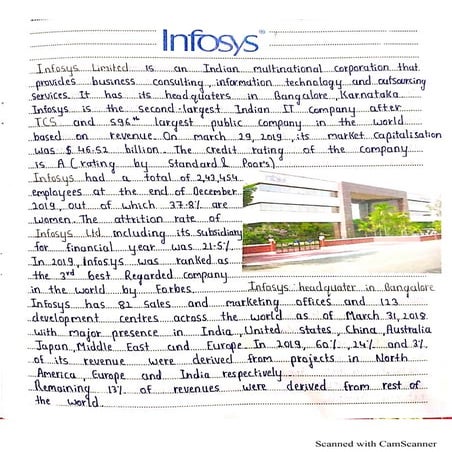 Infosys
Infosys Limited is an Indian multinational corporation that
provides business consulting, information technology and outsourcing
services. It has its headquaters in Bangalore, Karnataka
Infosys is the second-largest Indian IT company after
TCS and 596th largest public company in the world
based on revenue. On march 29, 2019, its market capitalisation
was $ 46.52 billion. The credit rating of the company
is A (rating by Standard & Poor's)
Infosys had a total of 2,43,454
employees at the end of December
2019, out of which 37.8% are
women. The attrition rate of
Infosys Ltd including its subsidiary
for financial year was 21.5%.
In 2019, Infosys was ranked as
the 3rd best Regarded company
in the world by Forbes.
Infosys headquater in Bangalore
Infosys has 82 sales and marketing offices and 123
development centres across the world as of March 31, 2018
with major presence in India, United states, China, Australia
Japan, Middle East and Europe. In 2019, 60%, 24% and 3%
of its revenue were derived from projects in North
America, Europe and India respectively.
Remaining 13% of revenues were derived from rest of
the world.
Scanned with CamScanner